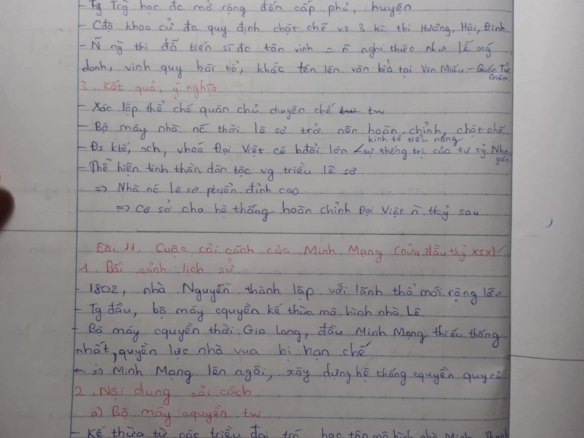 - Tg Trg học đc mở rộng đến cấp phủ, huyện
- Cđộ khoa cử đc quy định chặt chẽ vs 3 kì thi Hương, Hội, Đình
- Ñ ng thi đỗ tiến sĩ đc tôn vinh = ñ nghi thức như lễ xg
danh, vinh quy bái tổ, khắc tên lên văn bia tại Văn Miếu - Quốc Tử
Giám
3. Kết quả, ý nghĩa
- Xác lập thể chế quân chủ chuyên chế tw
- Bộ máy nhà nc thời Lê sơ trở nên hoàn chỉnh, chặt chẽ
kinh tế tiểu nông
- Đs ktế, xch, vhoá Đại Việt có bđổi lớn < sự thống trị của tư tg Nho
giáo
- Thể hiện tinh thần dân tộc vg triều Lê sơ
=> Nhà nc Lê sơ ptriển đỉnh cao
=> Cơ sở cho hệ thống hoàn chỉnh Đại Việt ñ tkỷ sau
Bài 11. Cuộc cải cách của Minh Mạng (nửa đầu tkỷ XIX)
1. Bối cảnh lịch sử
- 1802, nhà Nguyễn thành lập với lãnh thổ mới rộng lớn
- Tg đầu, bộ máy cquyền kế thừa mô hình nhà Lê
- Bộ máy cquyền thời Gia Long, đầu Minh Mạng thiếu thống
nhất, quyền lực nhà vua bị hạn chế
Minh Mạng lên ngôi, xây dựng hệ thống cquyền quy củ
2. Nội dung cải cách
a) Bộ máy cquyền tw
- Kế thừa từ các triều đại trc, học tập mô hình nhà Minh, Thanh